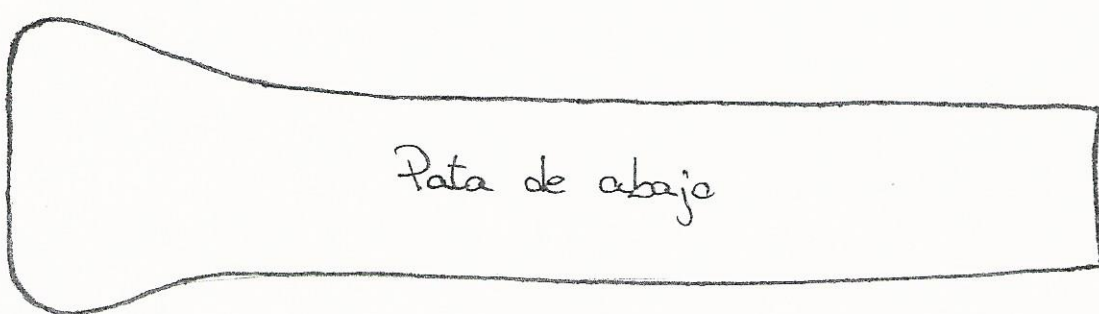 Pata de abajo